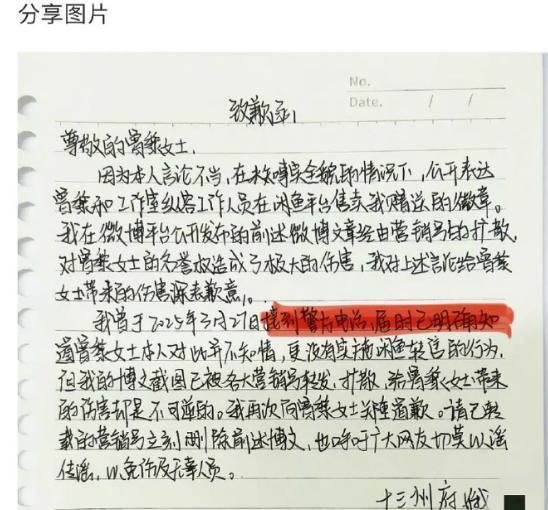 分享图片
No.
Date. / /
致歉函
尊敬的曾黎女士:
因为本人言论不当,在未核实全貌的情况下,公开表达
曾黎和工作室纵容工作人员在闲鱼平台售卖我赠送的徽章。
我在微博平台公开发布的前述微博文章经由营销号的扩散,
对曾黎女士的名誉权造成了极大的伤害,我对上述言论给曾黎
女士带来的伤害深表歉意。
我曾于2025年3月27日接到警方电话,届时已明确知
道曾黎女士本人对此并不知情,更没有实施闲鱼转售的行为,
但我的博文截图已被各大营销号转发,扩散,给曾黎女士带来
的伤害却是不可逆的。我再次向曾黎女士关键道歉。请已转
载的营销号立刻删除前述博文,也呼吁广大网友切莫以谣
传谣,以免伤及无辜人员。
十三州府娥